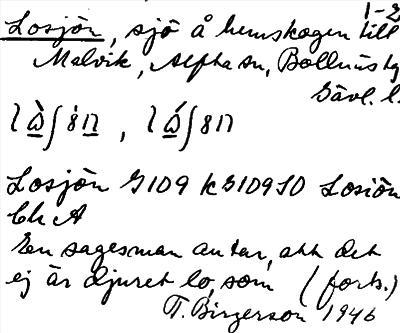 1-2
Losjön, sjö å hemskogen till
Malvik, Alfta sn, Bollnäs tg
Gävl. l.
Losjön G109 kG109SO Losiön
Ek A
En sagesman antar, att det
ej är djuret lo, som (forts.)
T. Birgerson 1946